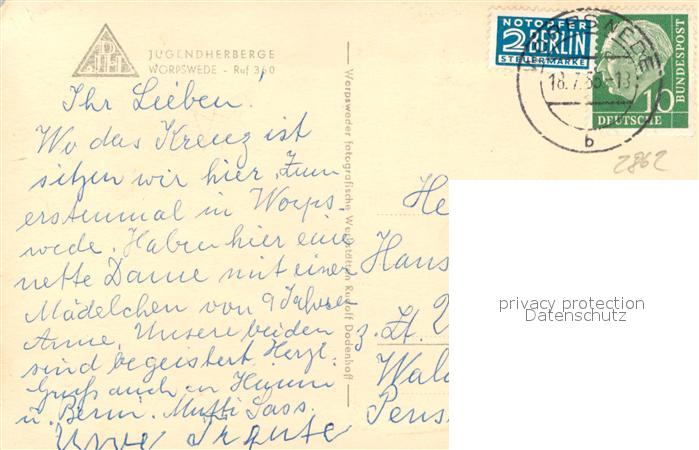 JUGENDHERBERGE
WORPSWEDE - Ruf 360
NOTOPFER
2 BERLIN
STEUERMARKE
18.7.55-13
b
10
DEUTSCHE
BUNDESPOST
2862
Ihr Lieben!
Wo das Kreuz ist
sitzen wir hier. Zum
erstenmal in Worps-
wede. Haben hier eine
nette Dame mit einem
Mädelchen von 9 Jahren
Anne. Unsere beiden
sind begeistert. Herzl.
Gruß auch an
u. Mutti
Uwe
Worpsweder fotografische Werkstätten Rudolf Dodenhoff
He
Hans
z. Zt.
Wald
Pens
privacy protection
Datenschutz